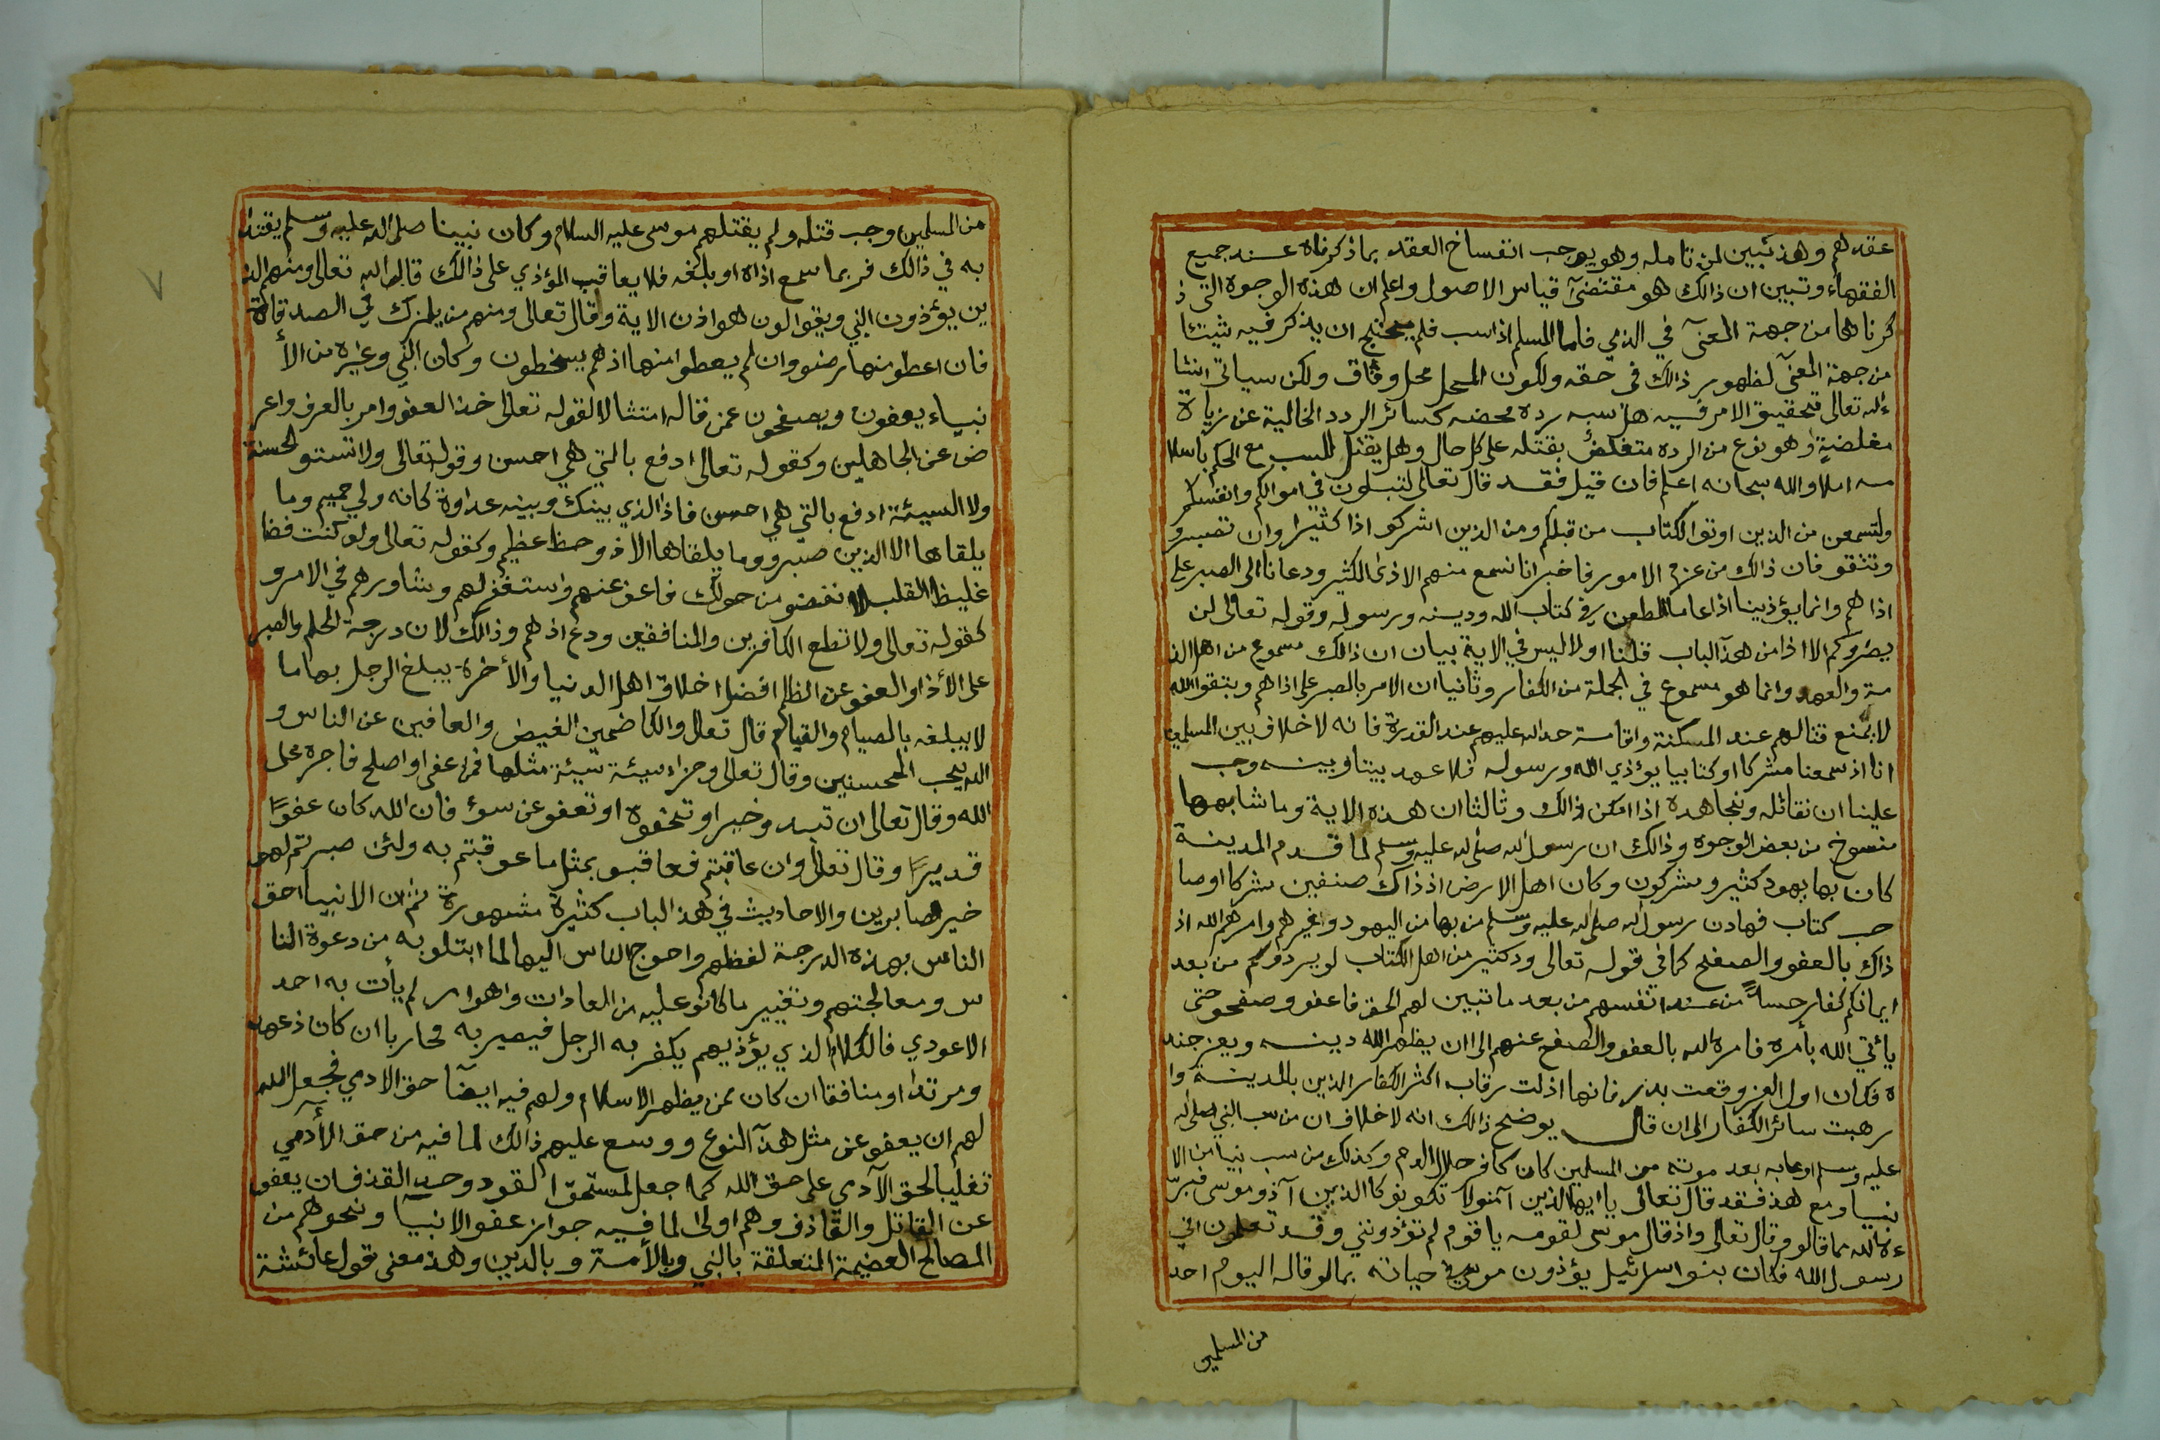 عقدهم وهذ تبين لمن تامله وهو يوجب انفساخ العقد بما ذكرناه عند جميع
الفقهاء وتبين ان ذالك هو مقتضىٓ قياس الاصول واعلم ان هذه الوجوة التي ذ
كرناها من جهة المعنىٓ في الذمي فاما المسلم اذا سب فلم يحتج ان يذكر فيه شيئا
من جهة المعنىٓ لظهور ذالك في حقه ولكون المحل محل وفاق ولكن سياتي انشا
ءالله تعالى تحقيق الامر فيه هل سبه رده محضه كسائر الردد الخالية عن زياة
مغلضةٍ وهو نوع من الرده متغلض بقتله على كل حال وهل يقتل للسب مع الحكم باسلا
مه املا والله سبحانه اعلم فان قيل فقد قال تعالى لتبلون في اموالكم وانفسكم
ولتسمعن من الذين اوتو الكتاب من قبلكم ومن الذين اشركو اذا كثيرا وان تصبرو
وتتقو فان ذالك من عزم الامور فاخبرانا نسمع منهم الاذى الكثير ودعانا الى الصبر على
اذاهم وانما يؤذينا اذا عاما الطعن في كتاب الله ودينه ورسوله وقوله تعالى لن
يضروكم الا اذا من هذ الباب قلنا اولا ليس في الاية بيان ان ذالك مسموع من اهل الذ
مة والعهد وانما هو مسموع في الجملة من الكفار وثانيا ان الامر بالصبر على اذاهم وبتقوا الله
لا يمنع قتالهم عند المسكنة واقامة حد الله عليهم عند القدرة فانه لا خلاف بين المسلمين
انا اذ سمعنا مشركا او كتابيا يؤذي الله ورسوله فلا عهد بيننا وبينه وجب
علينا ان نقاتله ونجاهده اذا امكن ذالك وثالثا ان هذه الاية وما شابهها
منسوخ من بعض الوجوه وذالك ان رسول الله صلى الله عليه وسلم لما قدم المدينة
كان بها يهود كثير ومشركون وكان اهل الارض اذ ذاك صنفين مشركا اوصا
حب كتاب فهادن رسول الله صلى الله عليه وسلم من بها من اليهود وغيرهم وامرهم الله اذ
ذاك بالعفو والصفح كما في قوله تعالى ود كثير من اهل الكتاب لو يردوكم من بعد
ايمانكم كفار حسداً من عند انفسهم من بعد ما تبين لهم الحق فاعفو وصفحو حتى
يأتي الله بأمره فامره الله بالعفو والصفح عنهم الى ان يظهر الله دينه ويعز جند
ه فكان اول العز وقعت بدر فانها اذلت رقاب اكثر الكفار الذين بالمدينة وا
رهبت سائر الكفار الى ان قال يوضح ذالك انه لا خلاف ان من سب النبي صلى الله
عليه وسلم او عابه بعد موته من المسلمين كان كافر حلال الدم وكذلك من سب نبيا من الا
نبيا ومع هذ فقد قال تعالى يا ايها الذين آمنو لا تكونو كا الذين آذو موسى فبر
ءه الله مما قالو وقال تعالى واذ قال موسى لقومه يا قوم لم تؤذونني وقد تعلمون اني
رسول الله فكان بنو اسرئيل يؤذون موسى في حياته بما لو قاله اليوم احد
من المسلمين
من المسلمين وجب قتله ولم يقتلهم موسى عليه السلام وكان نبينا صلى الله عليه وسلم يقتد
به في ذالك فربما سمع اذاه او بلغه فلا يعاقب المؤذي على ذالك قال الله تعالى ومنهم الذ
ين يؤذون النبي ويقوالون هو اذن الاية وقال تعالى ومنهم من يلمزك في الصدقاة
فان اعطو منها رضو وان لم يعطو منها اذهم يسخطون وكان النبي وغيره من الأ
نبياء يعفون ويصفحون عمن قاله امتثالا لقوله تعالى خذ العفو وامر بالعرف واعر
ض عن الجاهلين وكقوله تعالى ادفع بالتي هي احسن وقوله تعالى ولا تستو الحسنة
ولا السيئة ادفع بالتي هي احسن فاذ الذي بينك وبينه عداوة كانه ولي حميم وما
يلقاها الا الذين صبرو وما يلقاها الا ذو حظ عظيم وكقوله تعالى ولو كنت فضا
غليظ القلب لا نفضو من حولك فاعف عنهم واستغفر لهم وشاورهم في الامر و
كقوله تعالى ولا تطع الكافرين والمنافقين ودع اذهم وذالك لان درجة الحلم والصبر
على الأذا والعفو عن الظلم افضل اخلاق اهل الدنيا والأخرة يبلغ الرجل بها ما
لا يبلغه بالصيام والقيام قال تعالى والكاضمين الغيض والعافين عن الناس و
الله يحب المحسنين وقال تعالى وجزاء سيئة سيئة مثلها فمن عفى او اصلح فاجره على
الله وقال تعالى ان تبدو خيرا او تخفوه او تعفو عن سوؤ فان الله كان عفوًا
قديرًا وقال تعالى وان عاقبتم فعاقبو بمثل ما عوقبتم به ولئن صبرتم لهو
خير لصابرين والاحاديث في هذ الباب كثيرة مشهورة ثم ان الانبيا احق
الناس بهذه الدرجة لفظهم واحوج الناس اليها لما ابتلو به من دعوة النا
س ومعالجتهم وتغيير ما كانو عليه من العادات واهو امر لم يأت به احد
الا عودي فالكلام الذي يؤذيهم يكفر به الرجل فيصير به محاربا ان كان ذعهد
ومرتدا او منافقا ان كان ممن يظهر الاسلام ولهم فيه ايضا حق الادمي فجعل الله
لهم ان يعفو عن مثل هذ النوع ووسع عليهم ذالك لما فيه من حق الأدمي
تغليبا لحق الآدمي على حق الله كما جعل لمستحق القود وحد القذف ان يعفو
عن القاتل والقاذف وهم اولى لما فيه جواز عفو الانبيا ونحوهم من
المصالح العضيمة المتعلقة بالنبي وبالأمة وبالدين وهذ معنى قول عائشة